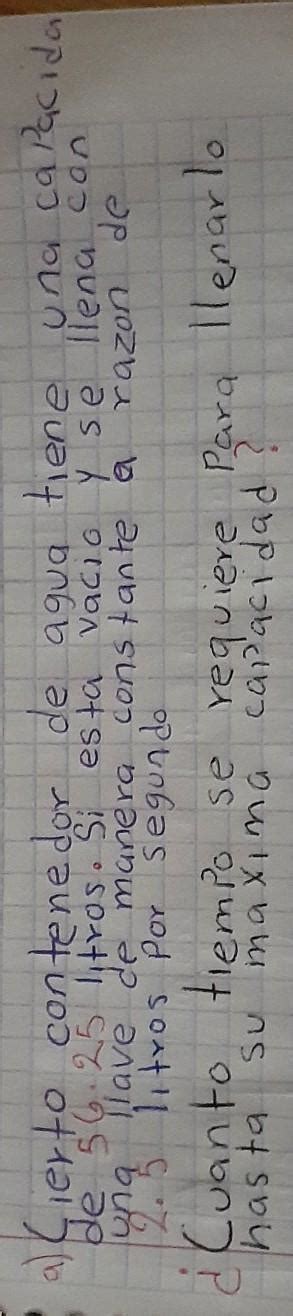 a) Cierto contenedor de agua tiene una capacida
de 56.25 litros. Si esta vacio y se llena con
una llave de manera constante a razon de
2.5 litros por segundo
¿Cuanto tiempo se requiere Para llenarlo
hasta su maxima capacidad?